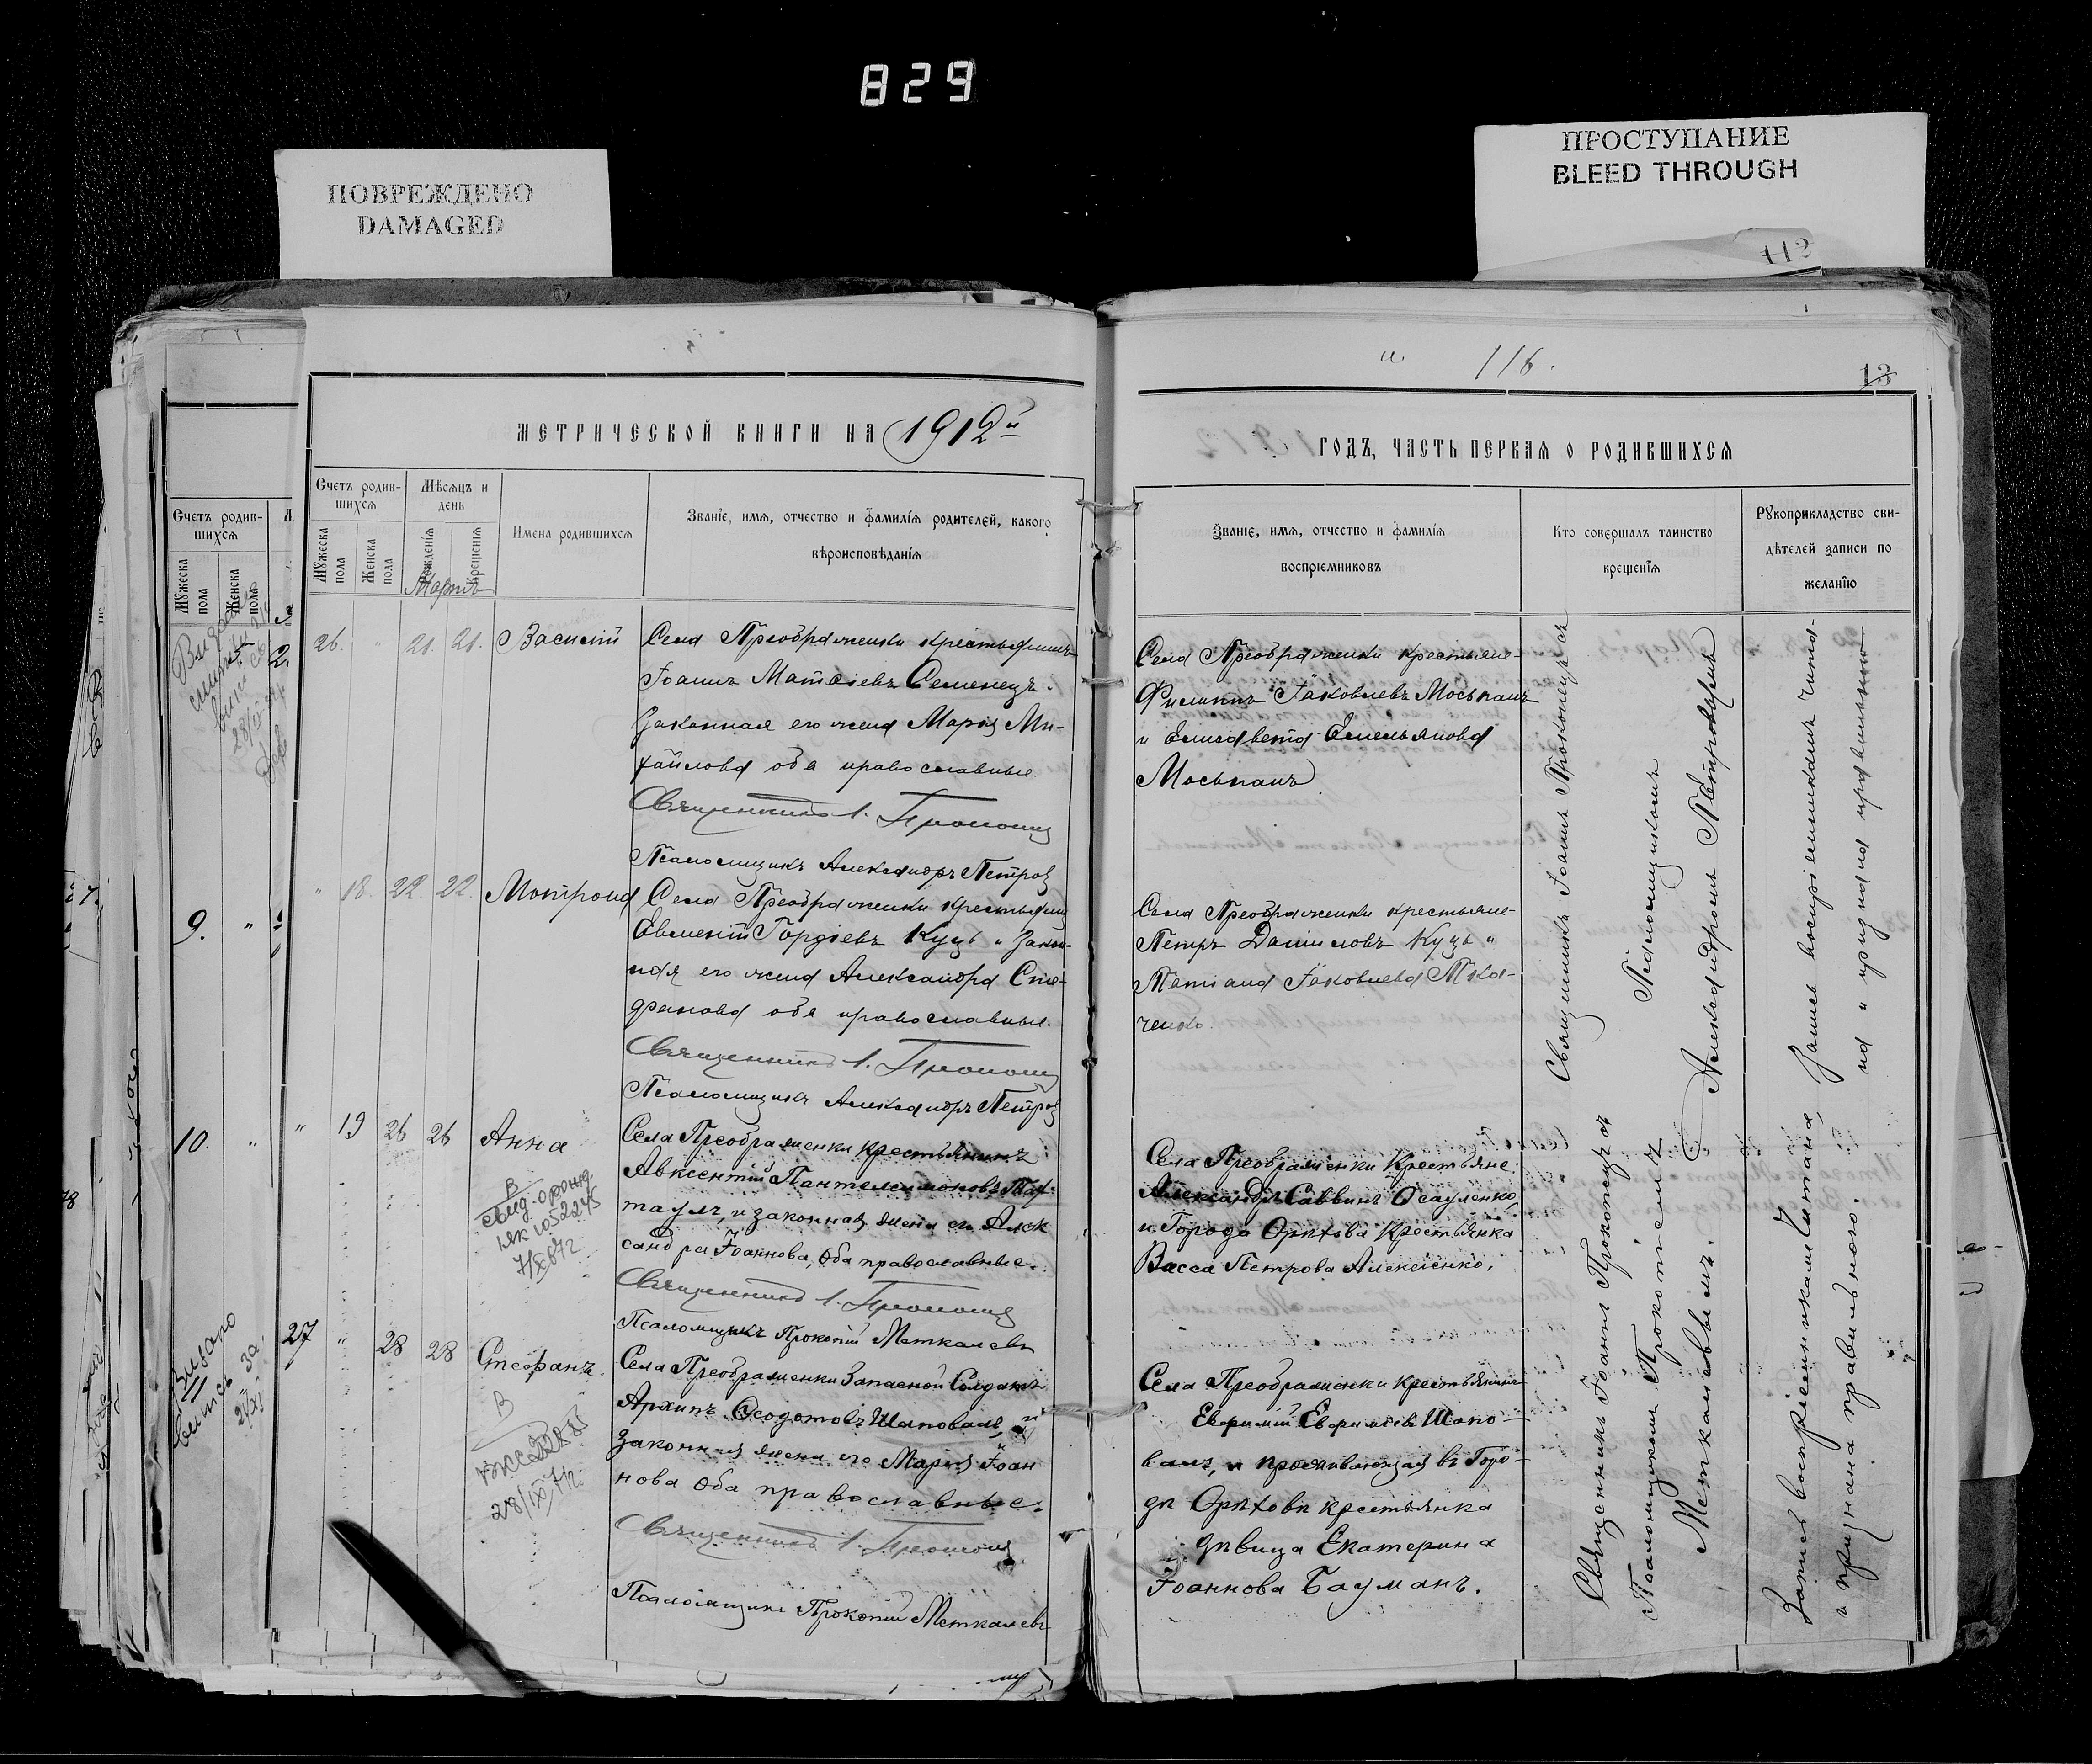 829
ПОВРЕЖДЕНО
DAMAGED
ПРОСТУПАНИЕ
BLEED THROUGH
113
и 116.
13
МЕТРИЧЕСКОЙ КНИГИ НА 1912й
ГОДЪ, ЧАСТЬ ПЕРВАЯ О РОДИВШИХСЯ
Счетъ родив-
шихся
Мужеска
пола
Женска
пола
9. "
10. "
Счетъ родив-
шихся
Мужеска
пола
Женска
пола
Мѣсяцъ и
день
Рожденія
Крещенія
Мартъ
Имена родившихся
Званіе, имя, отчество и фамилія родителей, какого
вѣроисповѣданія
Званіе, имя, отчество и фамилія
воспріемниковъ
Кто совершалъ таинство
крещенія
Рукоприкладство сви-
дѣтелей записи по
желанію
26. " 21. 21. Василій
Села Преображенки крестьянинъ
Іоаннъ Матѳіевъ Семенецъ.
Законная его жена Марія Ми-
хайлова оба православные.
Священникъ І. Прокопец
Псаломщикъ Александръ Петров
Села Преображенки крестьяне-
Филиппъ Іаковлевъ Моспанъ
и Елисавета Емельянова
Моспанъ.
" 18. 22. 22. Матрона
Села Преображенки крестьянин
Евменій Гордіевъ Куць и закон-
ная его жена Александра Сте-
фанова оба православные.
Священникъ І. Прокопец
Псаломщикъ Александръ Петров
Села Преображенки крестьяне-
Петръ Даниловъ Куць и
Татіана Іаковлева Тка-
ченко.
Священникъ Іоаннъ Прокопецъ съ
Псаломщикомъ
Александромъ Петровымъ
Запись воспріемникамъ чита-
на и признана правильною
" 19 26 26 Анна
В
7/X 872
Села Преображенки крестьянинъ
Авксентій Пантелеимоновъ Таф-
таулъ, и законная жена его Алек
сандра Іоаннова, оба православные.
Священникъ І. Прокопец
Псаломщикъ Прокопій Меткалевъ
Села Преображенки Крестьяне:
Александръ Саввинъ Осауленко,
и Города Орѣхова Крестьянка
Васса Петрова Алексіенко.
27 " 28 28 Стефанъ.
В
28/IX 72
Села Преображенки Запасной Солдатъ
Архипъ Ѳеодотовъ Шаповалъ, и
законная жена его Марія Іоан
нова оба православные.
Священникъ І. Прокопец
Псаломщикъ Прокопій Меткалевъ
Села Преображенки крестьянинъ
Евфимій Евфиміевъ Шапо-
валъ, и проживающая въ Горо-
дѣ Орѣховѣ крестьянка
дѣвица Екатерина
Іоаннова Бауманъ.
Священникъ Іоаннъ Прокопецъ съ
Псаломщикомъ Прокопіемъ
Меткалевымъ.
Запись воспріемникамъ читана,
и признана правильною.